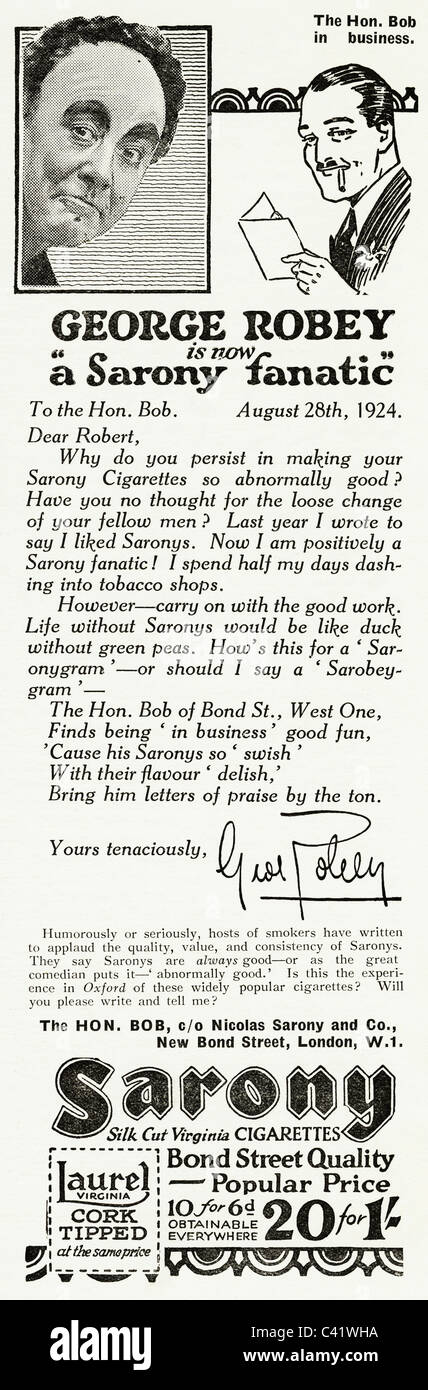 The Hon. Bob
in business.
GEORGE ROBEY
is now
"a Sarony fanatic"
To the Hon. Bob. August 28th, 1924.
Dear Robert,
Why do you persist in making your
Sarony Cigarettes so abnormally good?
Have you no thought for the loose change
of your fellow men? Last year I wrote to
say I liked Saronys. Now I am positively a
Sarony fanatic! I spend half my days dash-
ing into tobacco shops.
However—carry on with the good work.
Life without Saronys would be like duck
without green peas. How's this for a ' Sar-
onygram '—or should I say a ' Sarobey-
gram '—
The Hon. Bob of Bond St., West One,
Finds being ' in business ' good fun,
'Cause his Saronys so ' swish '
With their flavour ' delish,'
Bring him letters of praise by the ton.
Yours tenaciously,
Geo Robey
Humorously or seriously, hosts of smokers have written
to applaud the quality, value, and consistency of Saronys.
They say Saronys are always good—or as the great
comedian puts it—' abnormally good.' Is this the experi-
ence in Oxford of these widely popular cigarettes? Will
you please write and tell me?
The HON. BOB, c/o Nicolas Sarony and Co.,
New Bond Street, London, W.1.
Sarony
Silk Cut Virginia CIGARETTES
Laurel
VIRGINIA
CORK
TIPPED
at the same price
Bond Street Quality
— Popular Price
10 for 6d
OBTAINABLE
EVERYWHERE
20 for 1/-
alamy
Image ID: C41WHA
www.alamy.com